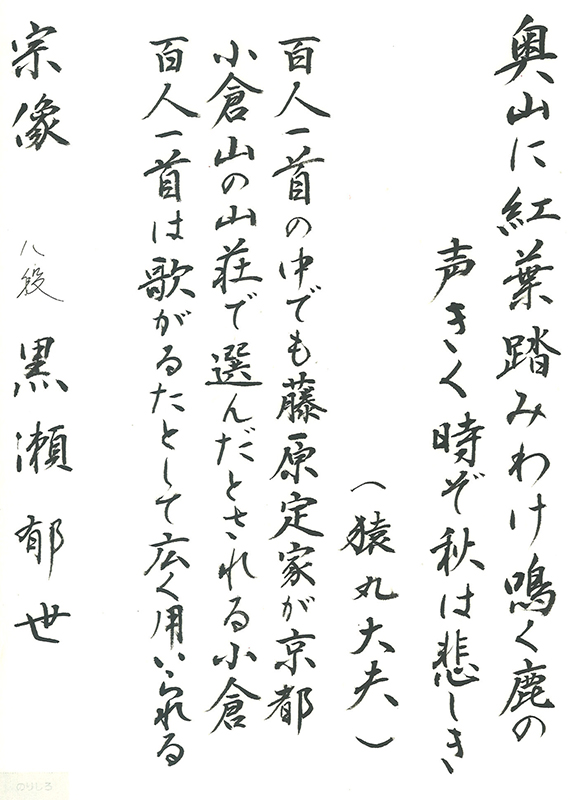 奥山に紅葉踏みわけ鳴く鹿の
声きく時ぞ秋は悲しき
（猿丸大夫）
百人一首の中でも藤原定家が京都
小倉山の山荘で選んだとされる小倉
百人一首は歌がるたとして広く用いられる
宗像 八段 黒瀬郁世
のりしろ